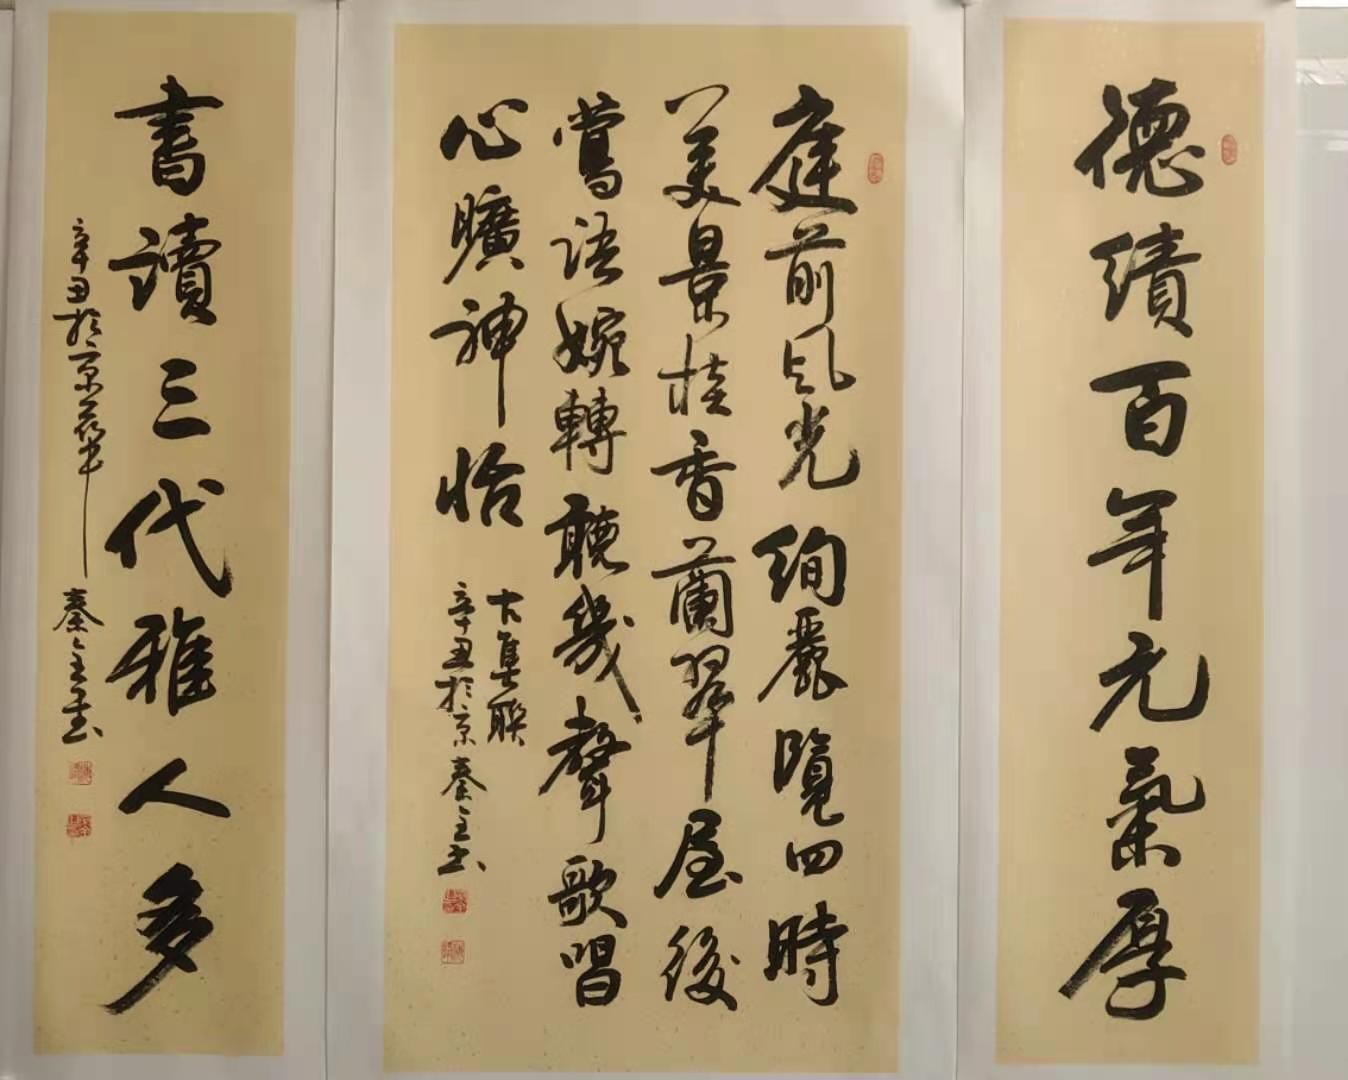 德績百年元氣厚
庭前風光絢麗覽四時
美景桂香蘭翠屋後
鶯語婉轉聽幾聲歌唱
心曠神怡
古集聯
辛丑於京秦全書
書讀三代雅人多
辛丑於京華
秦全書